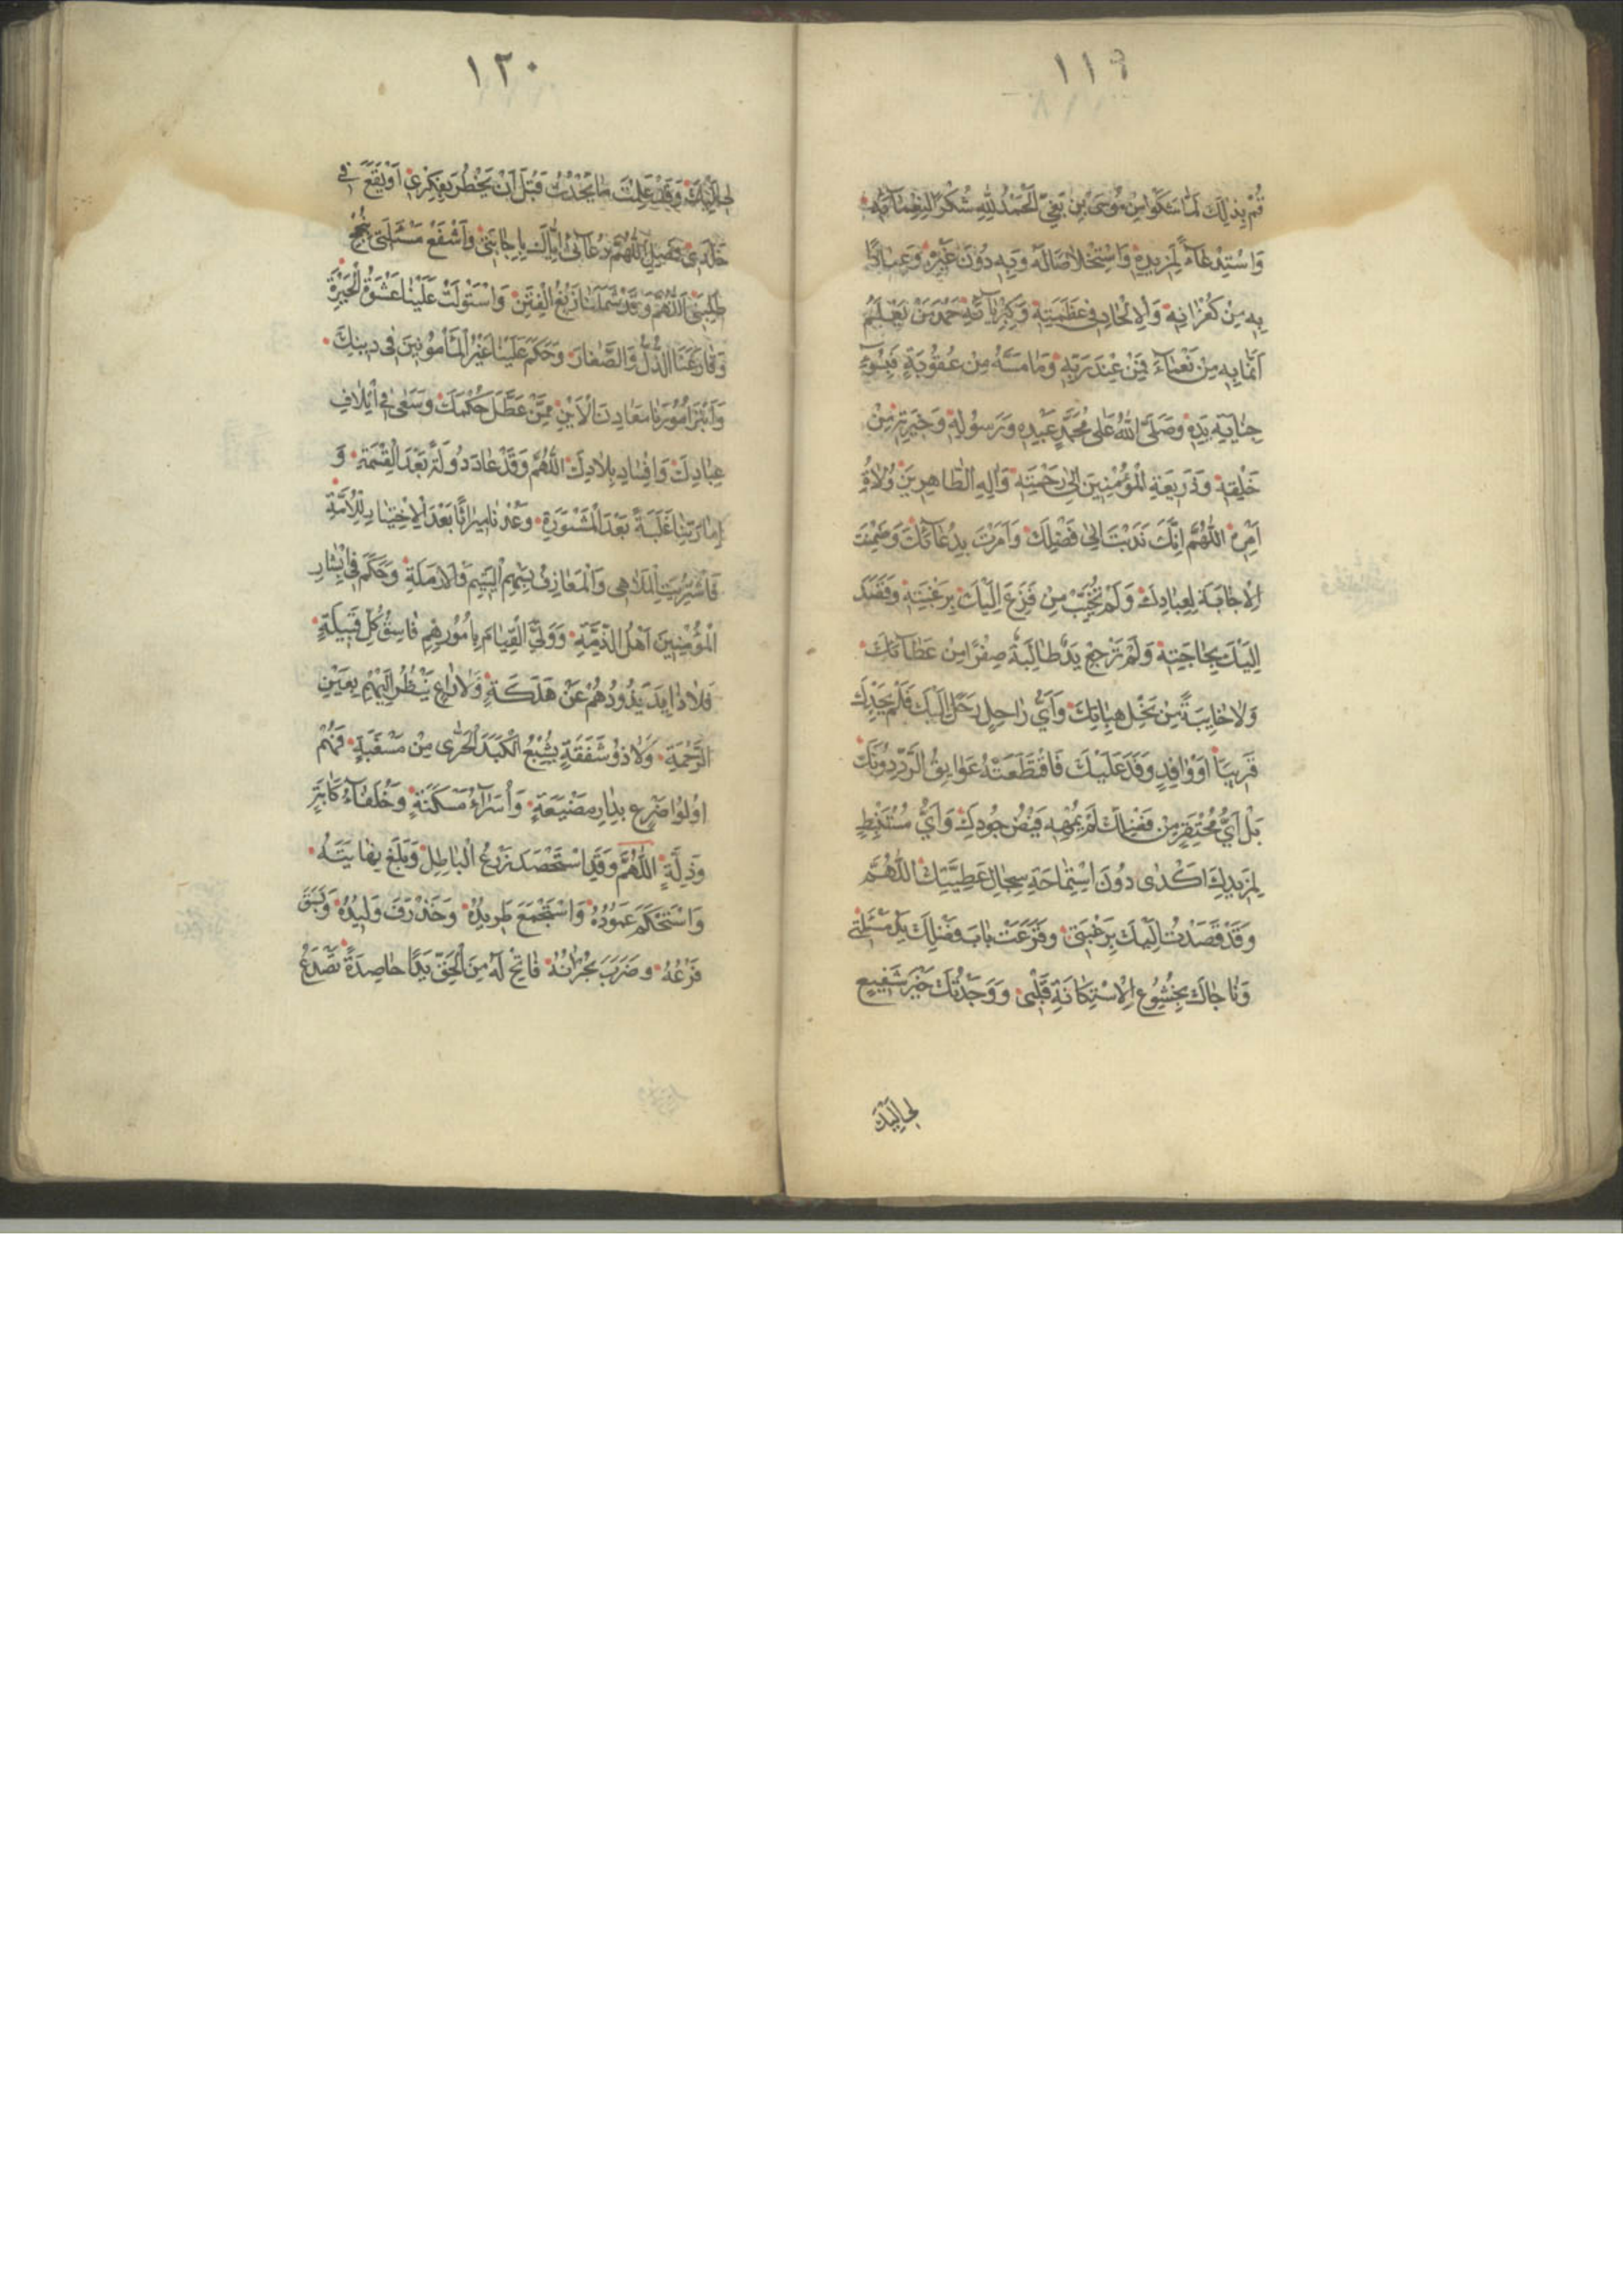 ١١٩
قُمْ بِذٰلِكَ لَمَّا شَكَوْا مِنْ مُوسَى بْنِ بَغِيّ اَلْحَمْدُ لِلّٰهِ شُكْرًا لِنِعْمَآئِهِ
وَاسْتِدْعَآءً لِمَزِيدِهِ وَاسْتِخْلَاصًا لَهُ وَبِهِ دُونَ غَيْرِهِ وَعِيَاذًا
بِهِ مِنْ كُفْرَانِهِ وَالْاِلْحَادِ فِي عَظَمَتِهِ وَكِبْرِيَآئِهِ حَمْدَ مَنْ يَعْلَمُ
اَنَّ مَا بِهِ مِنْ نَعْمَآءَ فَمِنْ عِنْدِ رَبِّهِ وَمَا مَسَّهُ مِنْ عُقُوبَةٍ فَبِسُوٓءِ
جِنَايَةِ يَدِهِ وَصَلَّى اللّٰهُ عَلٰى مُحَمَّدٍ عَبْدِهِ وَرَسُولِهِ وَخِيَرَتِهِ مِنْ
خَلْقِهِ وَذَرِيعَةِ الْمُؤْمِنِينَ اِلٰى رَحْمَتِهِ وَاٰلِهِ الطَّاهِرِينَ وُلَاةِ
اَمْرِهِ اَللّٰهُمَّ اِنَّكَ نَدَبْتَ اِلٰى فَضْلِكَ وَاَمَرْتَ بِدُعَآئِكَ وَضَمِنْتَ
الْاِجَابَةَ لِعِبَادِكَ وَلَمْ تُخَيِّبْ مَنْ فَزِعَ اِلَيْكَ بِرَغْبَتِهِ وَقَصَدَ
اِلَيْكَ بِحَاجَتِهِ وَلَمْ تَرْجِعْ يَدٌ طَالِبَةٌ صِفْرًا مِنْ عَطَآئِكَ
وَلَا خَآئِبَةً مِنْ نِحَلِ هِبَاتِكَ وَاَيُّ رَاحِلٍ رَحَلَ اِلَيْكَ فَلَمْ يَجِدْكَ
قَرِيبًا اَوْ وَافِدٍ وَفَدَ عَلَيْكَ فَاقْتَطَعَتْهُ عَوَايِقُ الرَّدِّ دُونَكَ
بَلْ اَيُّ مُحْتَفِرٍ مِنْ فَضْلِكَ لَمْ يُمْهِهِ فَيْضُ جُودِكَ وَاَيُّ مُسْتَنْبِطٍ
لِمَزِيدِكَ اَكْدٰى دُونَ اسْتِمَاحَةِ سِجَالِ عَطِيَّتِكَ اَللّٰهُمَّ
وَقَدْ قَصَدْتُ اِلَيْكَ بِرَغْبَتِي وَقَرَعَتْ بَابَ فَضْلِكَ يَدُ مَسْئَلَتِي
وَنَاجَاكَ بِخُشُوعِ الْاِسْتِكَانَةِ قَلْبِي وَوَجَدْتُكَ خَيْرَ شَفِيعٍ
لِي اِلَيْكَ
١٢٠
لِي اِلَيْكَ وَقَدْ عَلِمْتَ مَا يَحْدُثُ قَبْلَ اَنْ يَخْطُرَ بِفِكْرِي اَوْ يَقَعَ فِي
خَلَدِي فَصِلِ اللّٰهُمَّ دُعَآئِي اِيَّاكَ بِاِجَابَتِي وَاشْفَعْ مَسْئَلَتِي بِنُجْحِ
طَلِبَتِي اَللّٰهُمَّ وَقَدْ شَمَلَنَا زَيْغُ الْفِتَنِ وَاسْتَوْلَتْ عَلَيْنَا عَشْوَةُ الْحَيْرَةِ
وَقَارَعَنَا الذُّلُّ وَالصَّغَارُ وَحَكَمَ عَلَيْنَا غَيْرُ الْمَأْمُونِينَ فِي دِينِكَ
وَابْتَزَّ اُمُورَنَا مَعَادِنُ الْاُبَنِ مِمَّنْ عَطَّلَ حُكْمَكَ وَسَعٰى فِي اِتْلَافِ
عِبَادِكَ وَاِفْسَادِ بِلَادِكَ اَللّٰهُمَّ وَقَدْ عَادَ دُولَةً بَعْدَ الْقِسْمَةِ وَ
اِمَارَتُنَا غَلَبَةً بَعْدَ الْمَشْوَرَةِ وَعُدْنَا مِيرَاثًا بَعْدَ الْاِخْتِيَارِ لِلْاُمَّةِ
فَاشْتُرِيَتِ الْمَلَاهِي وَالْمَعَازِفُ بِسَهْمِ الْيَتِيمِ وَالْاَرْمَلَةِ وَحَكَمَ فِي اَبْشَارِ
الْمُؤْمِنِينَ اَهْلُ الذِّمَّةِ وَوَلِيَ الْقِيَامَ بِاُمُورِهِمْ فَاسِقُ كُلِّ قَبِيلَةٍ
فَلَا ذَائِدَ يَذُودُهُمْ عَنْ هَلَكَةٍ وَلَا رَاعٍ يَنْظُرُ اِلَيْهِمْ بِعَيْنِ
الرَّحْمَةِ وَلَا ذُو شَفَقَةٍ يُشْبِعُ الْكَبِدَ الْحَرّٰى مِنْ مَسْغَبَةٍ فَهُمْ
اُولُوا ضَرَعٍ بِدَارِ مَضْيَعَةٍ وَاُسَرَآءُ مَسْكَنَةٍ وَخُلَفَآءُ كَابَةٍ
وَذِلَّةٍ اَللّٰهُمَّ وَقَدِ اسْتَحْصَدَ زَرْعُ الْبَاطِلِ وَبَلَغَ نِهَايَتَهُ
وَاسْتَحْكَمَ عَمُودُهُ وَاسْتَجْمَعَ طَرِيدُهُ وَخَذْرَفَ وَلِيدُهُ وَبَسَقَ
فَرْعُهُ وَضَرَبَ بِجِرَانِهِ فَاتِحْ لَهُ مِنَ الْحَقِّ يَدًا حَاصِدَةً تَصْدَعُ